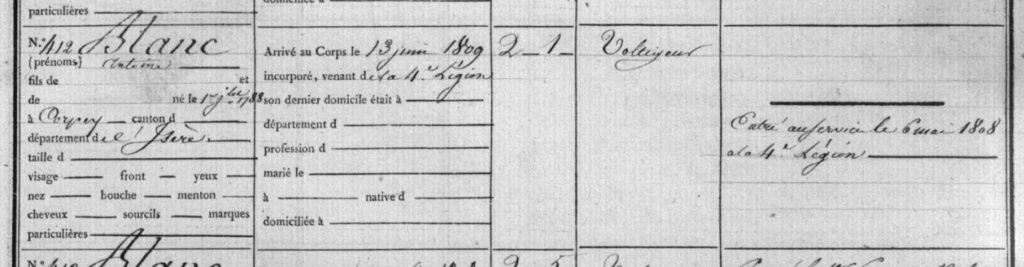 particulières
domiciliée à
N.º 412 Blanc
(prénoms) Antoine
fils de et
de né le 1er jbre 1788
à canton d
département de l'Isère
taille d
visage front yeux
nez bouche menton
cheveux sourcils marques
particulières
Arrivé au Corps le 13 juin 1809
incorporé, venant de la 4e Légion
son dernier domicile était à
département d
profession d
marié le
à native d
domiciliée à
2 1
Voltigeur
Entré au service le 6 mai 1808
a la 4e Légion
N.º Blanc
2 5